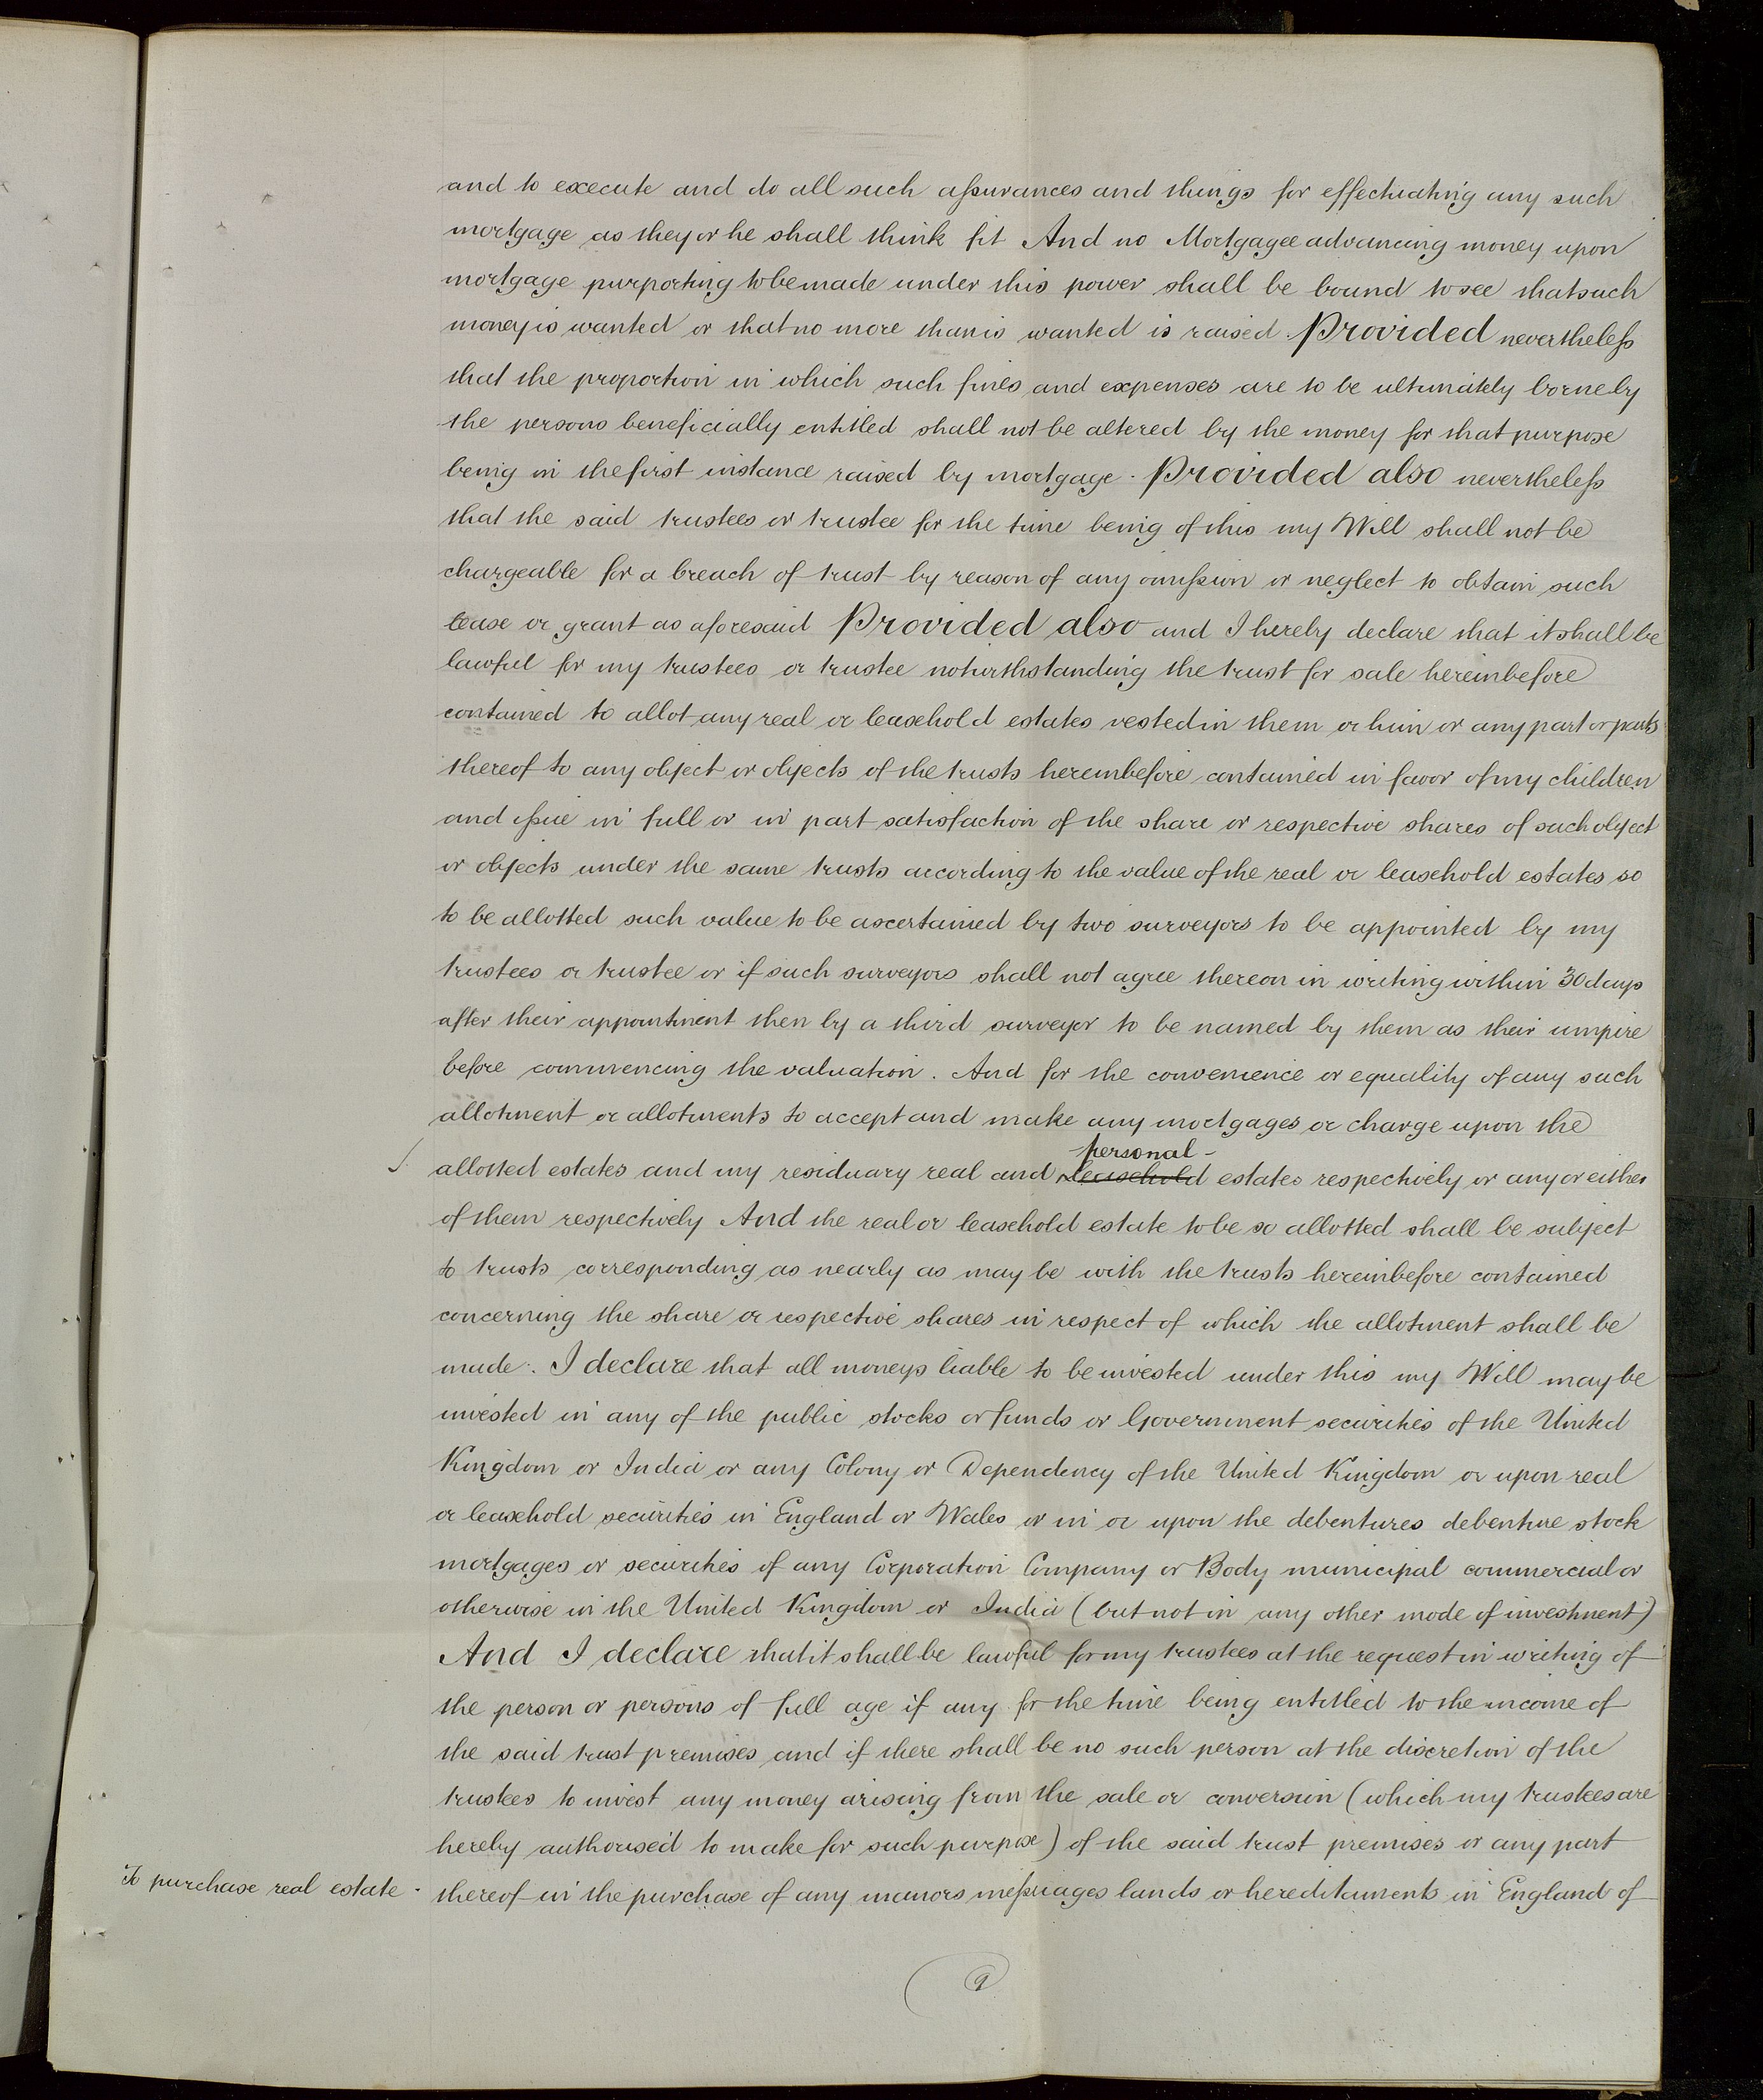 and to execute and do all such assurances and things for effectuating any such
mortgage as they or he shall think fit And no Mortgagee advancing money upon
mortgage purporting to be made under this power shall be bound to see that such
money is wanted or that no more than is wanted is raised. Provided nevertheless
that the proportion in which such fines and expenses are to be ultimately borne by
the persons beneficially entitled shall not be altered by the money for that purpose
being in the first instance raised by mortgage. Provided also nevertheless
that the said trustees or trustee for the time being of this my Will shall not be
chargeable for a breach of trust by reason of any omission or neglect to obtain such
lease or grant as aforesaid Provided also and I hereby declare that it shall be
lawful for my trustees or trustee notwithstanding the trust for sale hereinbefore
contained to allot any real or leasehold estates vested in them or him or any part or parts
thereof to any object or objects of the trusts hereinbefore contained in favor of my children
and issue in full or in part satisfaction of the share or respective shares of such object
or objects under the same trusts according to the value of the real or leasehold estates so
to be allotted such value to be ascertained by two surveyors to be appointed by my
trustees or trustee or if such surveyors shall not agree thereon in writing within 30 days
after their appointment then by a third surveyor to be named by them as their umpire
before commencing the valuation. And for the convenience or equality of any such
allotment or allotments to accept and make any mortgages or charge upon the
personal
allotted estates and my residuary real and leasehold estates respectively or any or either
of them respectively And the real or leasehold estate to be so allotted shall be subject
to trusts corresponding as nearly as may be with the trusts hereinbefore contained
concerning the share or respective shares in respect of which the allotment shall be
made. I declare that all moneys liable to be invested under this my Will may be
invested in any of the public stocks or funds or Government securities of the United
Kingdom or India or any Colony or Dependency of the United Kingdom or upon real
or leasehold securities in England or Wales or in or upon the debentures debenture stock
mortgages or securities of any Corporation Company or Body municipal commercial or
otherwise in the United Kingdom or India (but not in any other mode of investment)
And I declare that it shall be lawful for my trustees at the request in writing of
the person or persons of full age if any for the time being entitled to the income of
the said trust premises and if there shall be no such person at the discretion of the
trustees to invest any money arising from the sale or conversion (which my trustees are
hereby authorised to make for such purpose) of the said trust premises or any part
To purchase real estate.
thereof in the purchase of any manors messuages lands or hereditaments in England of
9